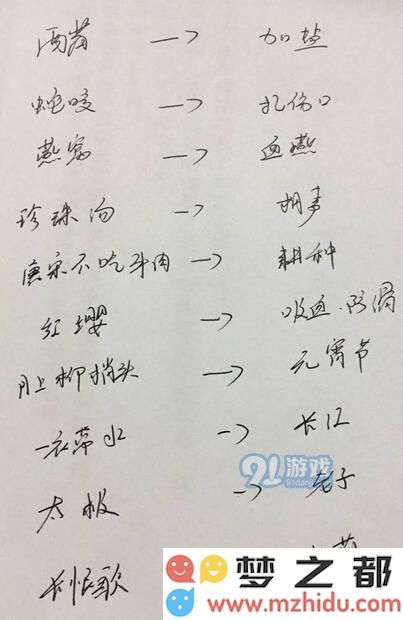 西芹 → 加盐
蛇咬 → 扎伤口
燕窝 → 血燕
珍珠汤 → 胡来
唐宋不吃牛肉 → 耕种
红缨 → 吸血.防滑
月上柳梢头 → 元宵节
一衣带水 → 长江
91游戏
91danji
太极 → 老子
长恨歌
梦之都
www.mzhidu.com